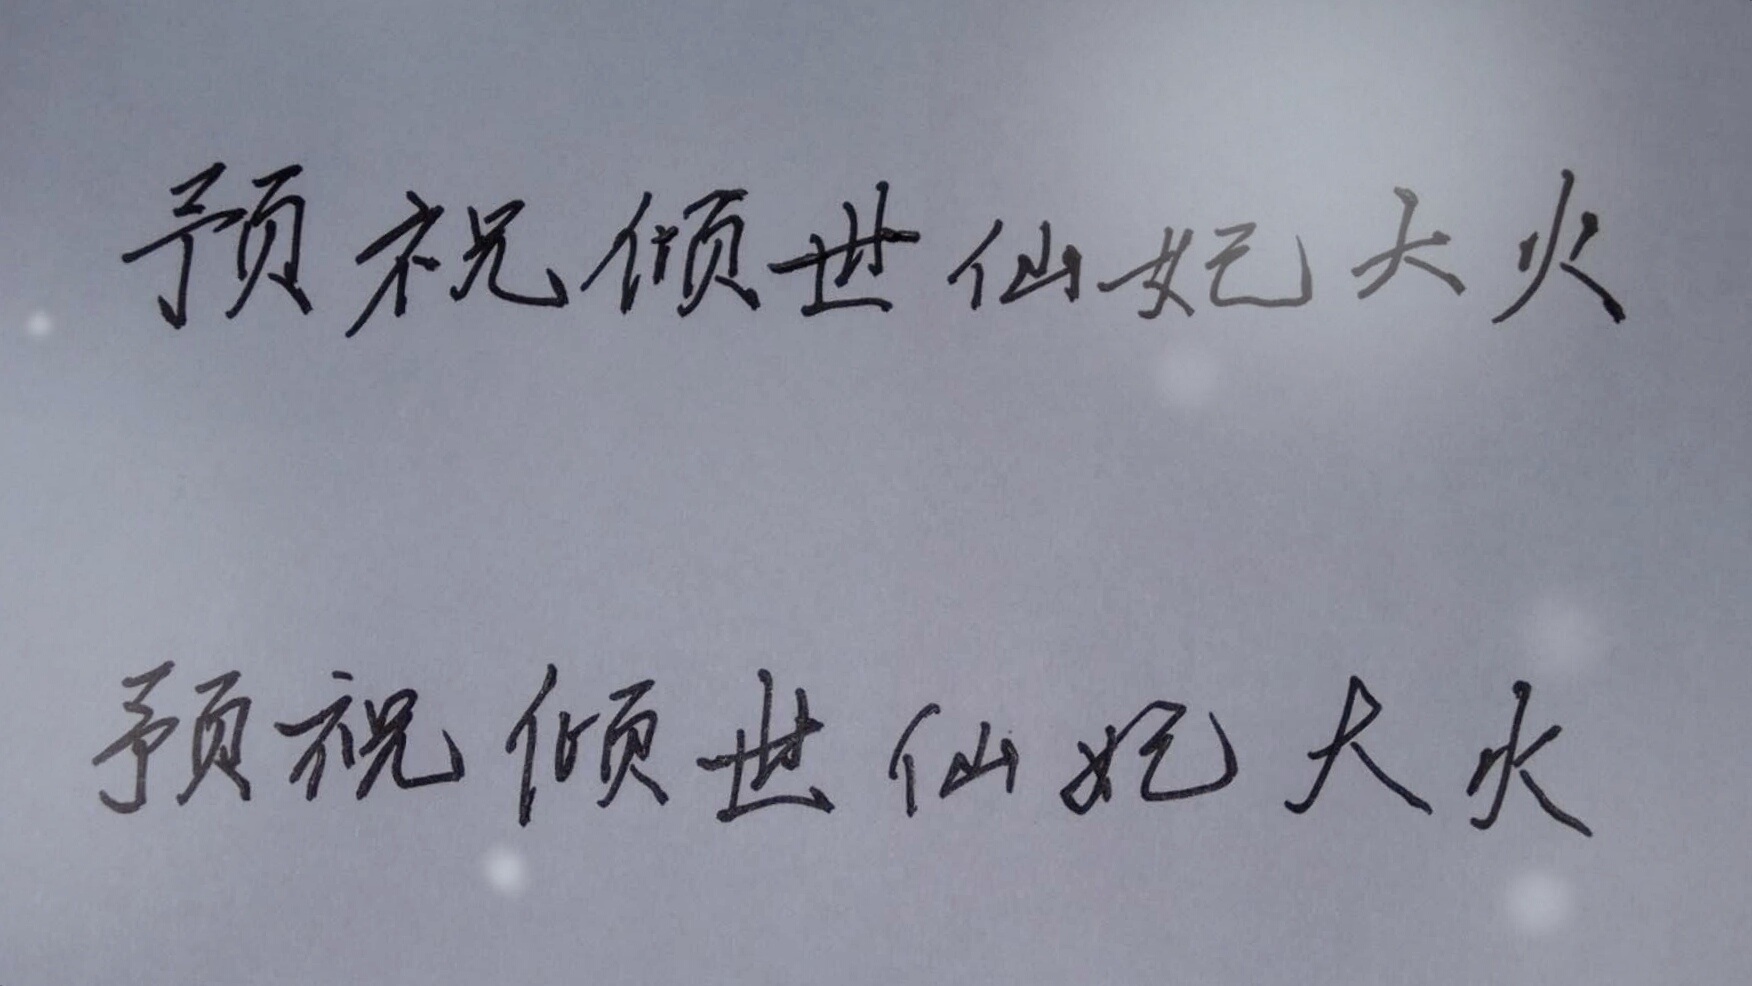 预祝倾世仙妃大火
预祝倾世仙妃大火